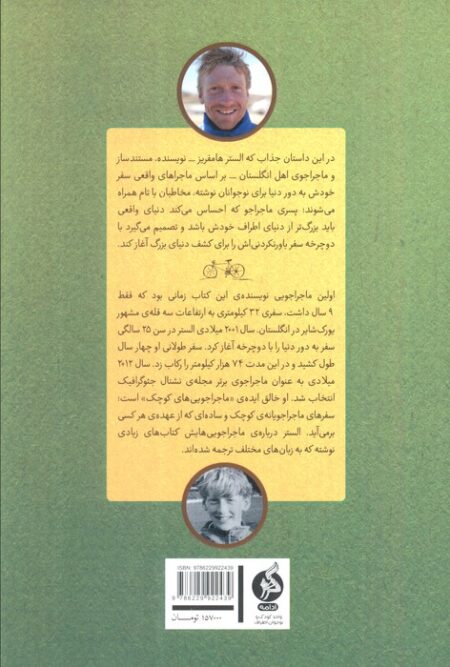 در این داستان جذاب که الستر هامفریز ــ نویسنده، مستندساز
و ماجراجوی اهل انگلستان ــ بر اساس ماجراهای واقعی سفر
خودش به دور دنیا برای نوجوانان نوشته، مخاطبان با تام همراه
می‌شوند؛ پسری ماجراجو که احساس می‌کند دنیای واقعی
باید بزرگ‌تر از دنیای اطراف خودش باشد و تصمیم می‌گیرد با
دوچرخه سفر باورنکردنی‌اش را برای کشف دنیای بزرگ آغاز کند.
اولین ماجراجویی نویسنده‌ی این کتاب زمانی بود که فقط
۹ سال داشت، سفری ۳۲ کیلومتری به ارتفاعات سه قله‌ی مشهور
یورک‌شایر در انگلستان. سال ۲۰۰۱ میلادی الستر در سن ۲۵ سالگی
سفر به دور دنیا را با دوچرخه آغاز کرد. سفر طولانی او چهار سال
طول کشید و در این مدت ۷۴ هزار کیلومتر را رکاب زد. سال ۲۰۱۲
میلادی به عنوان ماجراجوی برتر مجله‌ی نشنال جئوگرافیک
انتخاب شد. او خالق ایده‌ی «ماجراجویی‌های کوچک» است؛
سفرهای ماجراجویانه‌ی کوچک و ساده‌ای که از عهده‌ی هر کسی
برمی‌آید. الستر درباره‌ی ماجراجویی‌هایش کتاب‌های زیادی
نوشته که به زبان‌های مختلف ترجمه شده‌اند.
ISBN: 9786229922439
9 786229 922439
۱۵۷۰۰۰ تومـــان
ادامه
واحد کودک و
نوجوان اطراف